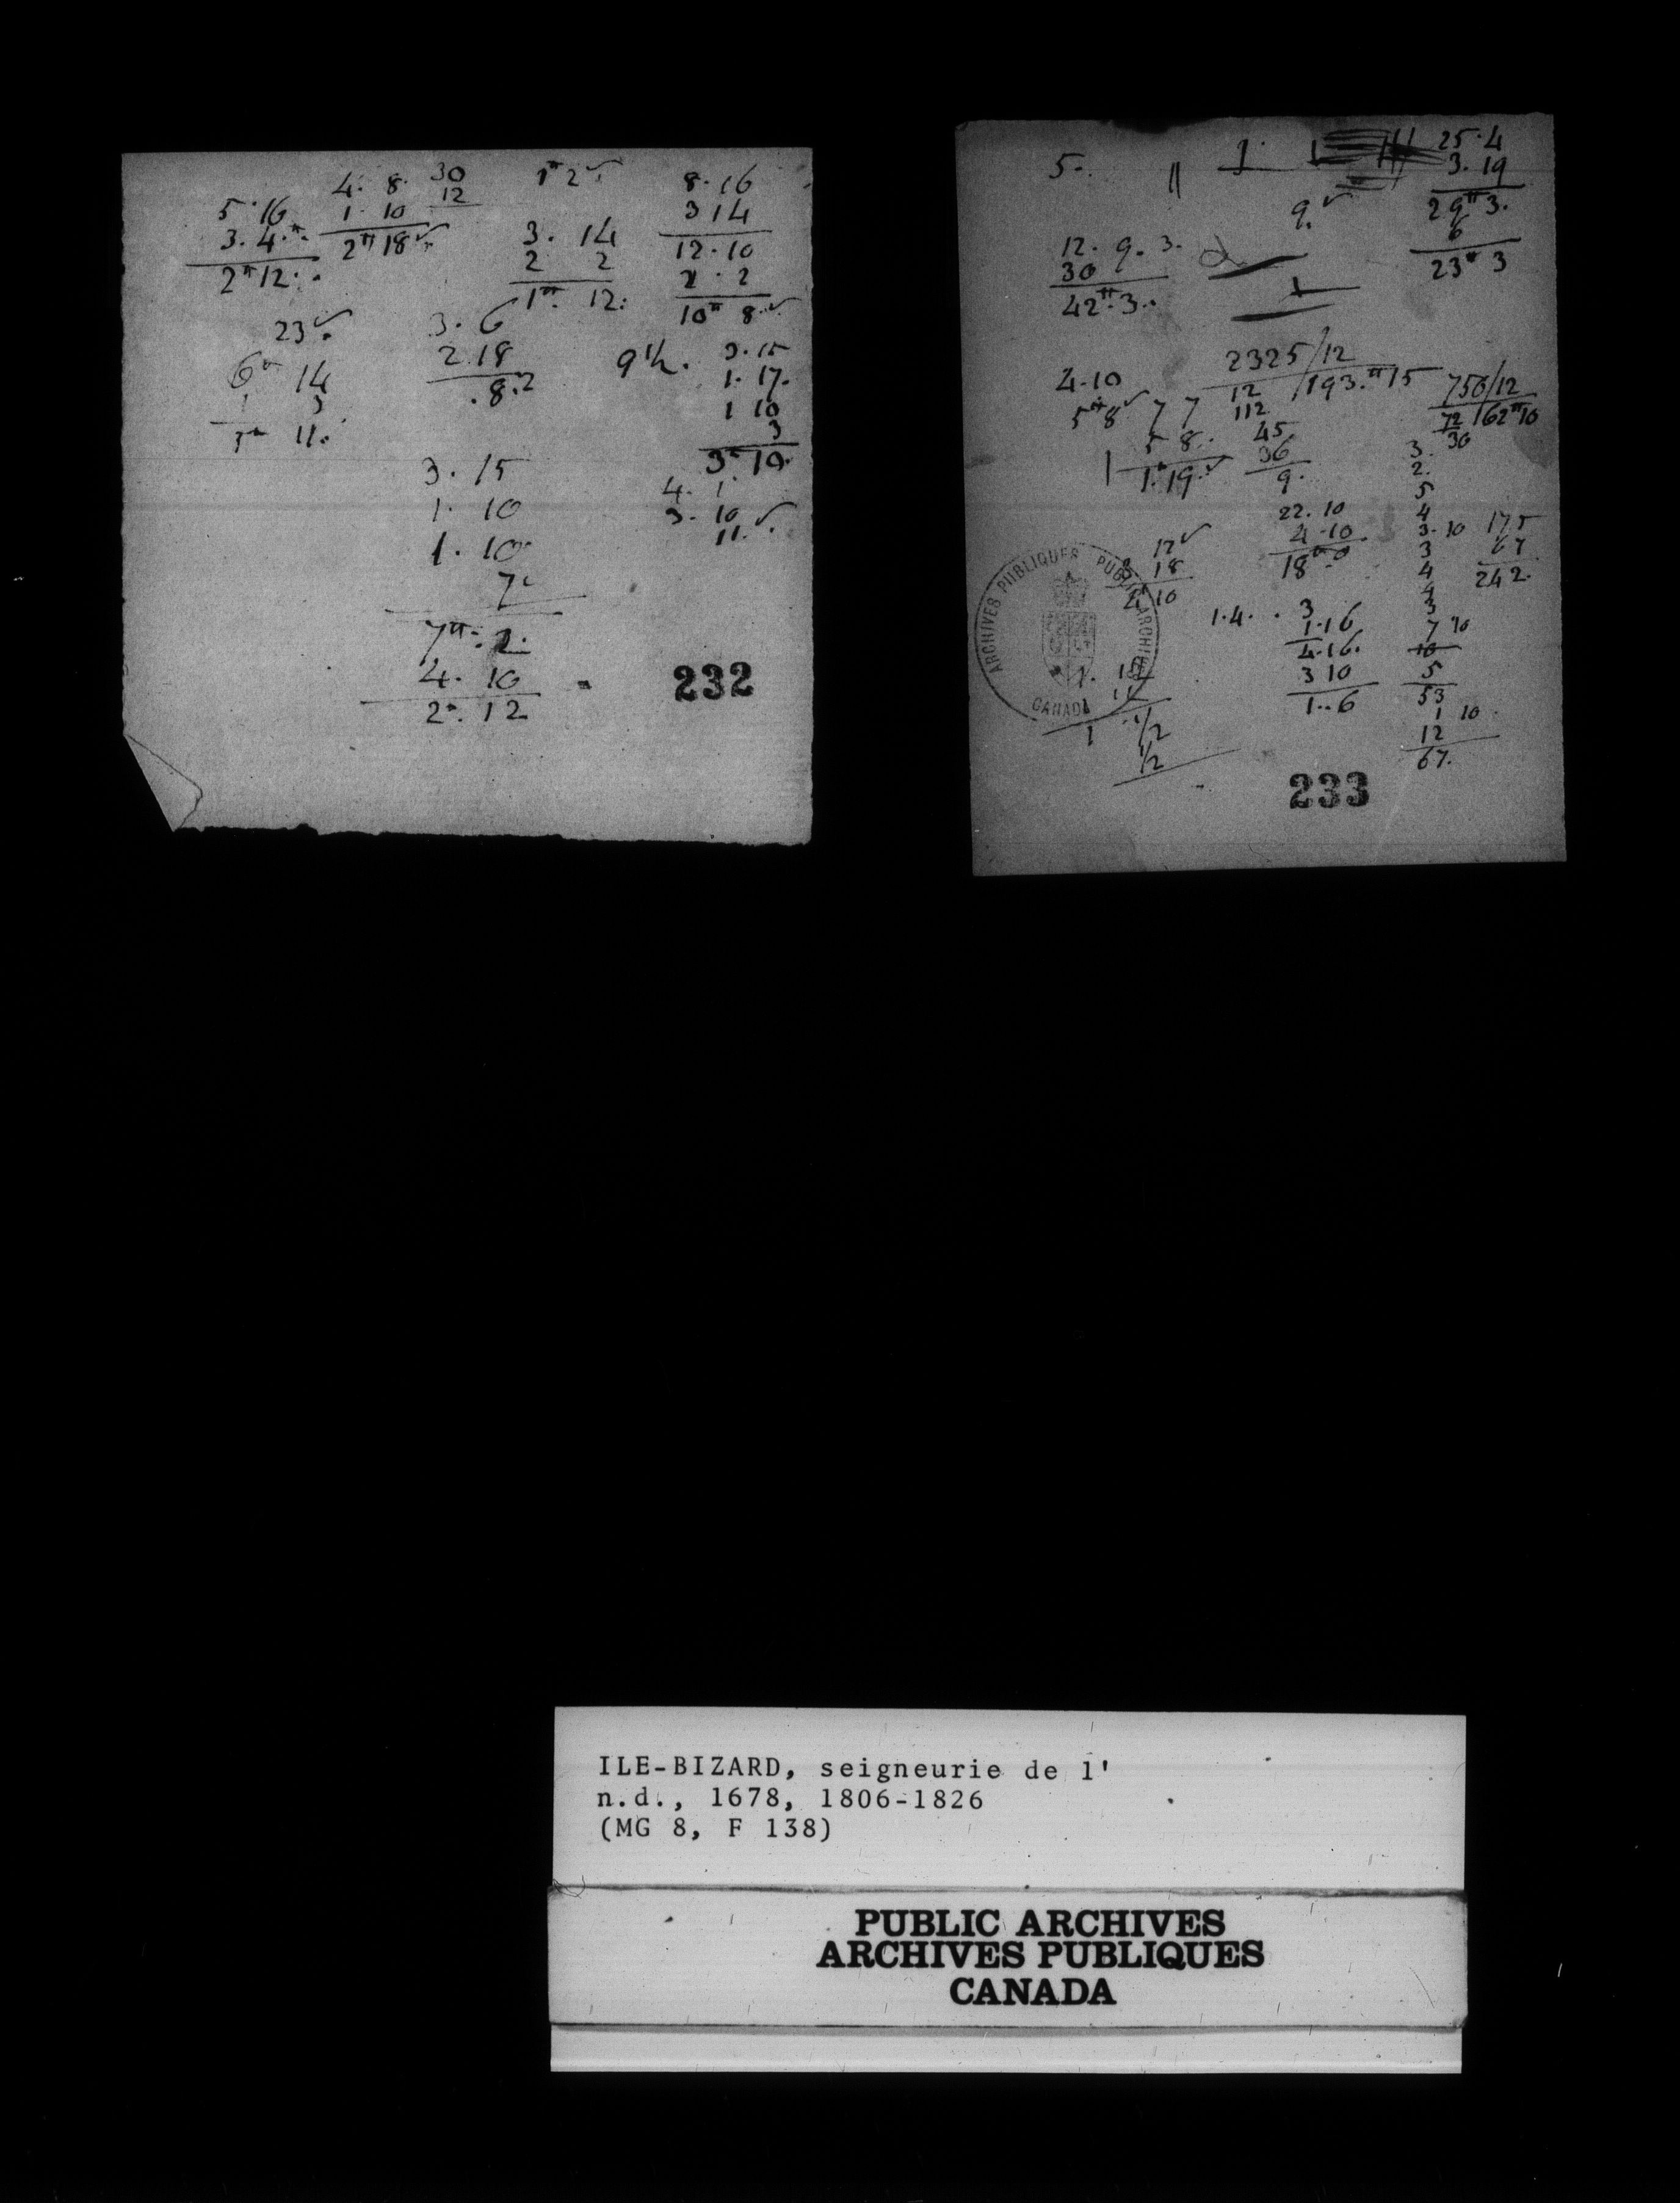 4. 8. 30 1# 2 8. 16
5. 16 1. 10 12 3 14
3. 4. 2# 18 3. 14 12. 10
2# 12. 2 2 2. 2
1# 12. 10# 8
23 3. 6
2 18 9 1/2. 3. 15
6 14 . 8. 2 1. 17.
1 10
11. 3
3. 15 3# 10.
1. 10 4. 1.
1. 10 3. 10
7 11.
7#. 2.
4. 10
2#. 12
232
5. 1 1 25. 4
3. 19
9. 29# 3.
12. 9. 3. 6
30 23# 3
42#. 3. 1
2325/12
4. 10 12 /193.# 15 750/12
5# 8 7 7 112 72 /62# 10
5 8. 45 30
1 1. 19. 36 3.
9. 2.
5
22. 10 4
12 4. 10 3. 10 175
18 18# 0 3 67
10 4 242.
4
1. 4. 3 3
1. 16 7 10
4. 16. 10
3 10 5
1.. 6 53
1/2 1 10
1 12
1/2 67.
233
ARCHIVES PUBLIQUES PUBLIC ARCHIVES
CANADA
ILE-BIZARD, seigneurie de l'
n.d., 1678, 1806-1826
(MG 8, F 138)
PUBLIC ARCHIVES
ARCHIVES PUBLIQUES
CANADA